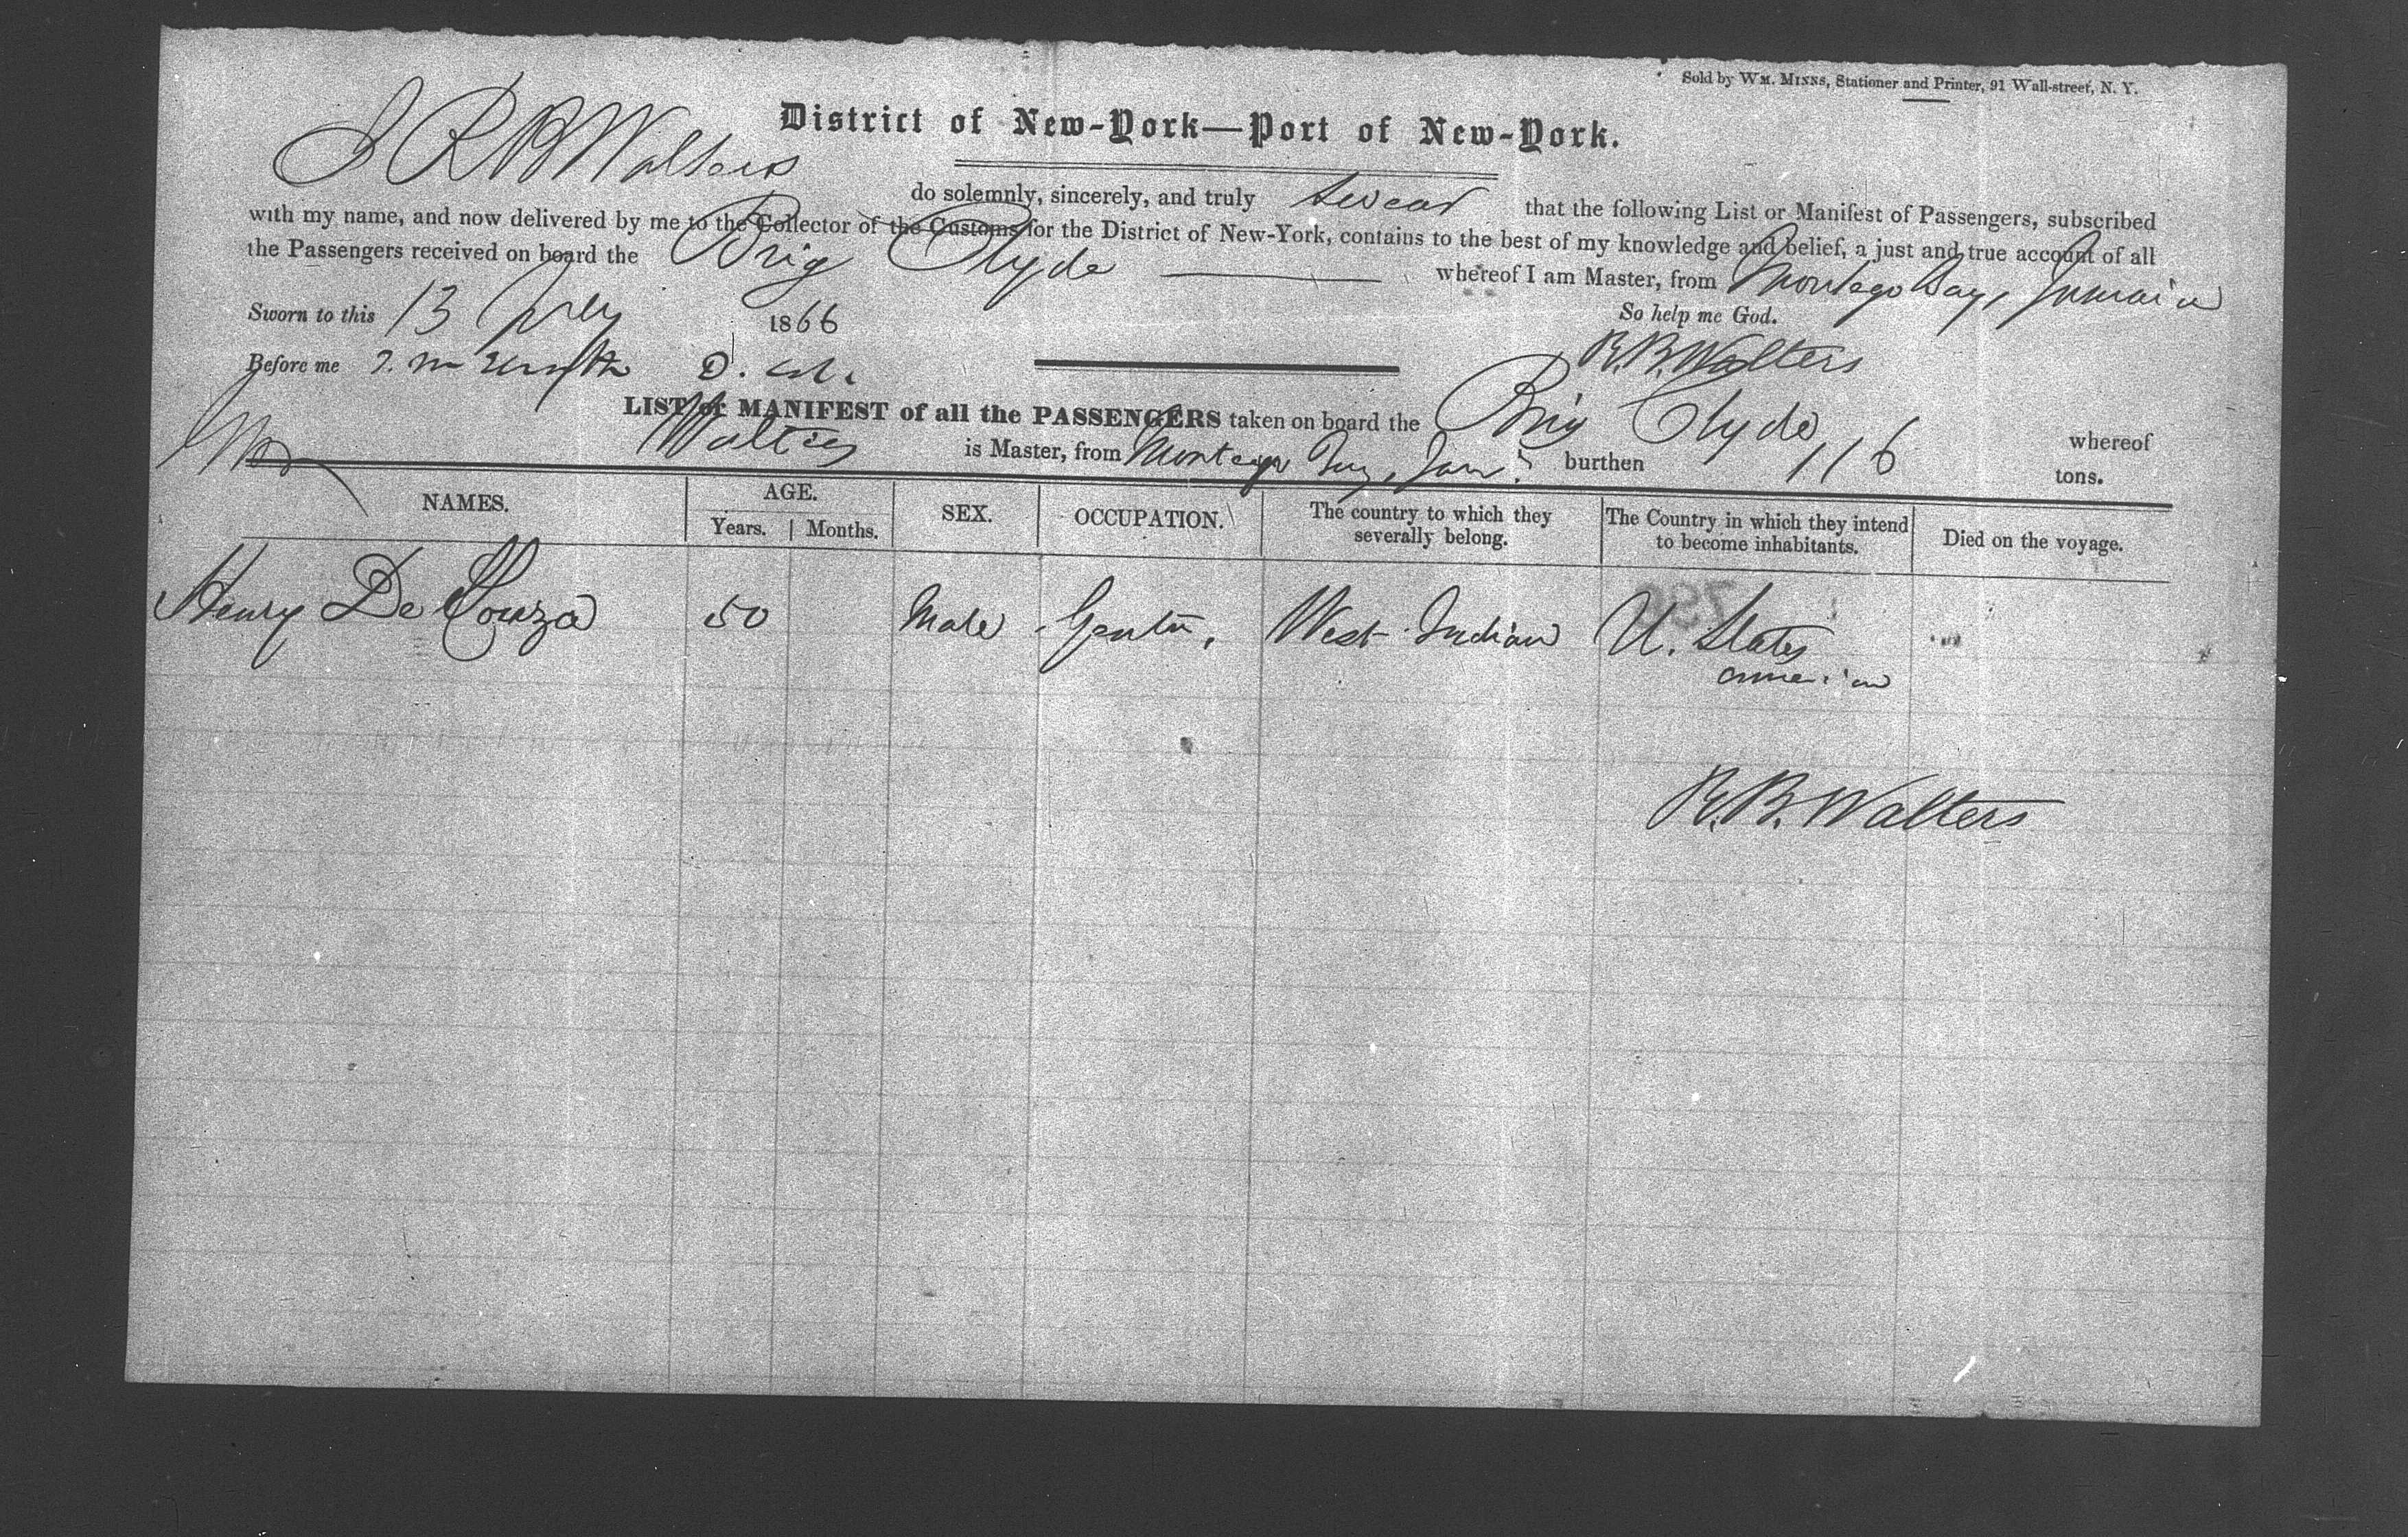 Sold by WM. MINNS, Stationer and Printer, 91 Wall-street, N. Y.
District of New-York—Port of New-York.
I R B Walters do solemnly, sincerely, and truly swear that the following List or Manifest of Passengers, subscribed
with my name, and now delivered by me to the Collector of the Customs for the District of New-York, contains to the best of my knowledge and belief, a just and true account of all
the Passengers received on board the Brig Clyde whereof I am Master, from Montego Bay, Jamaica
Sworn to this 13 1866 So help me God.
Before me R. B. Walters
LIST or MANIFEST of all the PASSENGERS taken on board the Brig Clyde, whereof
Walters is Master, from Montego Bay, Jam. burthen 116 tons.
NAMES. AGE. SEX. OCCUPATION. The country to which they severally belong. The Country in which they intend to become inhabitants. Died on the voyage.
Years. Months.
Henry De Souza 50 Male Gentn, West Indian U. States
R. B. Walters